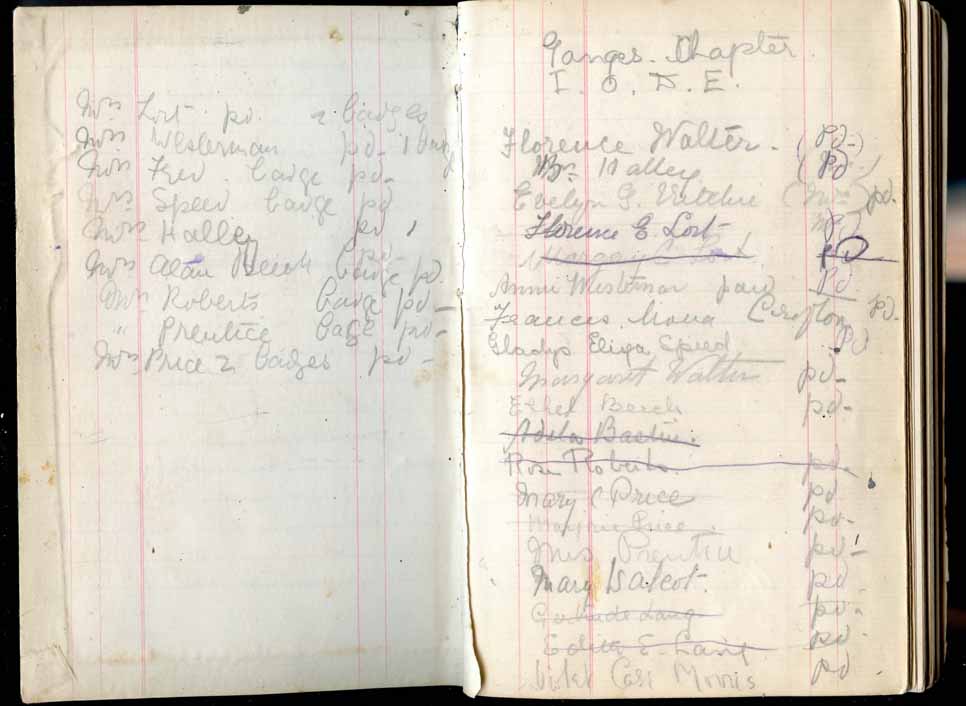 Mrs Lort pd. 2 badges
Mrs Westerman pd- 1 badg
Mrs Fred badge pd-
Mrs Speed badge pd
Mrs Halley pd
Mrs Alan badge pd.
Mrs Roberts badge pd-
" Prentice badge pd-
Mrs Price 2 badges pd-
Ganges. Chapter
I. O. D. E.
Florence Walter. (Pd-)
Mrs Halley (Pd)
Evelyn G. (Mrs) pd.
Florence E. Lort pd
pd
Annie Westerman paid Pd
Frances Mona Crofton pd.
Gladys Eliza Speed Pd
Margaret Walter pd-
Ethel Beech pd-
Adela
Rose Roberts. pd.
Mary C Price pd
Marjorie Price. pd-
Mrs Prentice pd-
Mary pd
Gertrude Lang pd-
Edith E. pd-
Violet Cass Morris pd